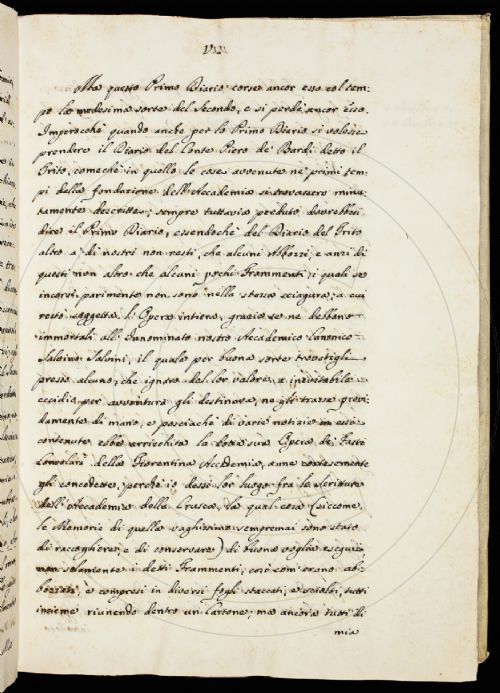 VII
Ma questo Primo Diario corse ancor esso col tem-
po la medesima sorte del Secondo, e si perdè ancor esso.
Imperocchè quando anche per lo Primo Diario si volesse
prendere il Diario del Conte Piero de' Bardi detto il
Trito, comechè in quello le cose avvenute ne' primi tem-
pi della fondazione dell'Accademia si trovassero minu-
tamente descritte; sempre tuttavia perduto dovrebbesi
dire il Primo Diario, essendochè del Diario del Trito
altro a' dì nostri non resti, che alcuni Abbozzi, e anzi di
questi non altro che alcuni pochi Frammenti; i quali se
incorsi parimente non sono nella stessa sciagura, a cui
restò soggetta l'Opera intiera, grazie se ne debbono
immortali all'Innominato nostro Accademico Canonico
Salvino Salvini, il quale per buona sorte trovatigli
presso alcuno, che ignaro del lor valore, a inevitabile
eccidio per avventura gli destinava, ne gli trasse provi-
damente di mano, e posciachè di varie notizie in essi
contenute ebbe arricchita la dotta sua Opera de' Fasti
Consolari della Fiorentina Accademia, a me cortesemente
gli concedette, perchè io dessi lor luogo fra le Scritture
dell'Accademia della Crusca, la qual cosa (siccome
le Memorie di quella vaghissimo sempremai sono stato
di raccogliere, e di conservare) di buona voglia eseguii,
non solamente i detti Frammenti, così com'erano ab-
bozzati, e compresi in diversi fogli staccati, e sciolti, tutti
insieme riunendo dentro un Cartone; ma ancora tutti di
mia